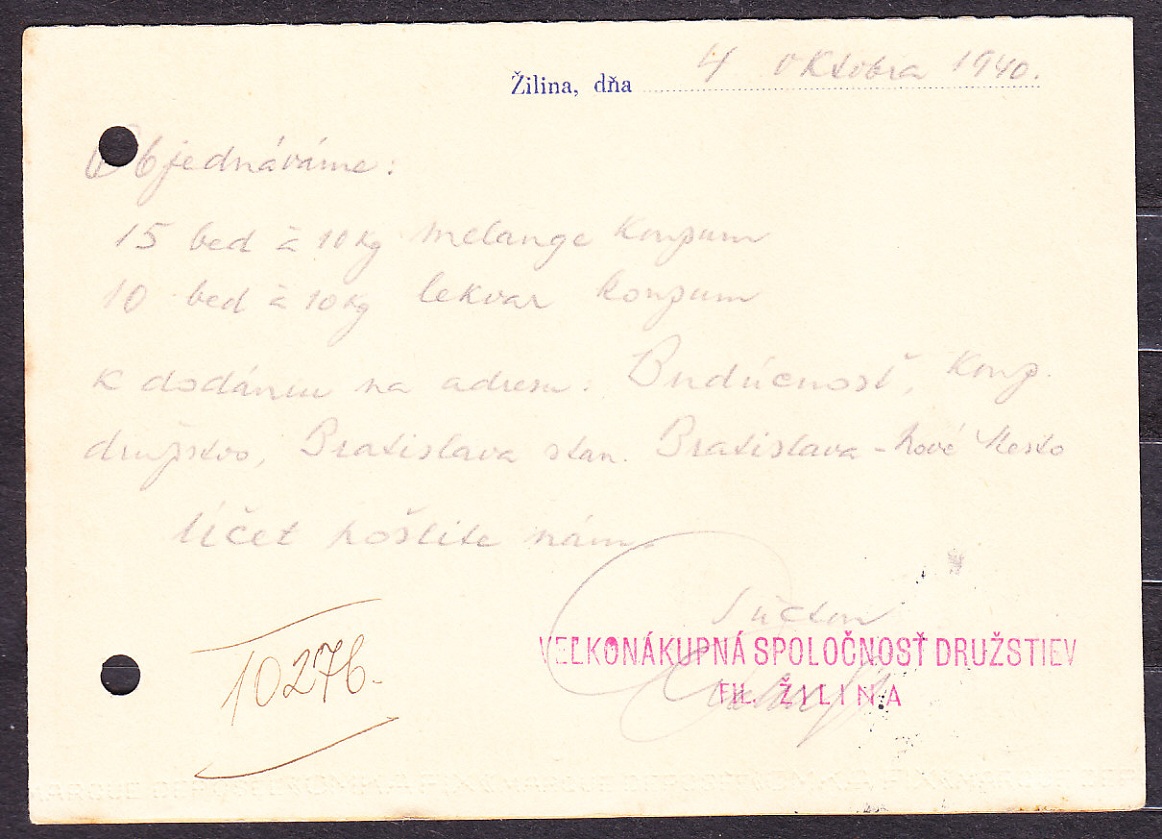 Žilina, dňa 4 oktobra 1940.
Objednáváme:
15 bed à 10 kg melange Konzum
10 bed à 10 kg lekvar Konzum
K dodániu na adresu: Budúcnosť, Konz.
družstvo, Bratislava stan. Bratislava-Nové Mesto
Účet pošlite nám.
S úctou
VEĽKONÁKUPNÁ SPOLOČNOSŤ DRUŽSTIEV
FIL. ŽILINA
10276.